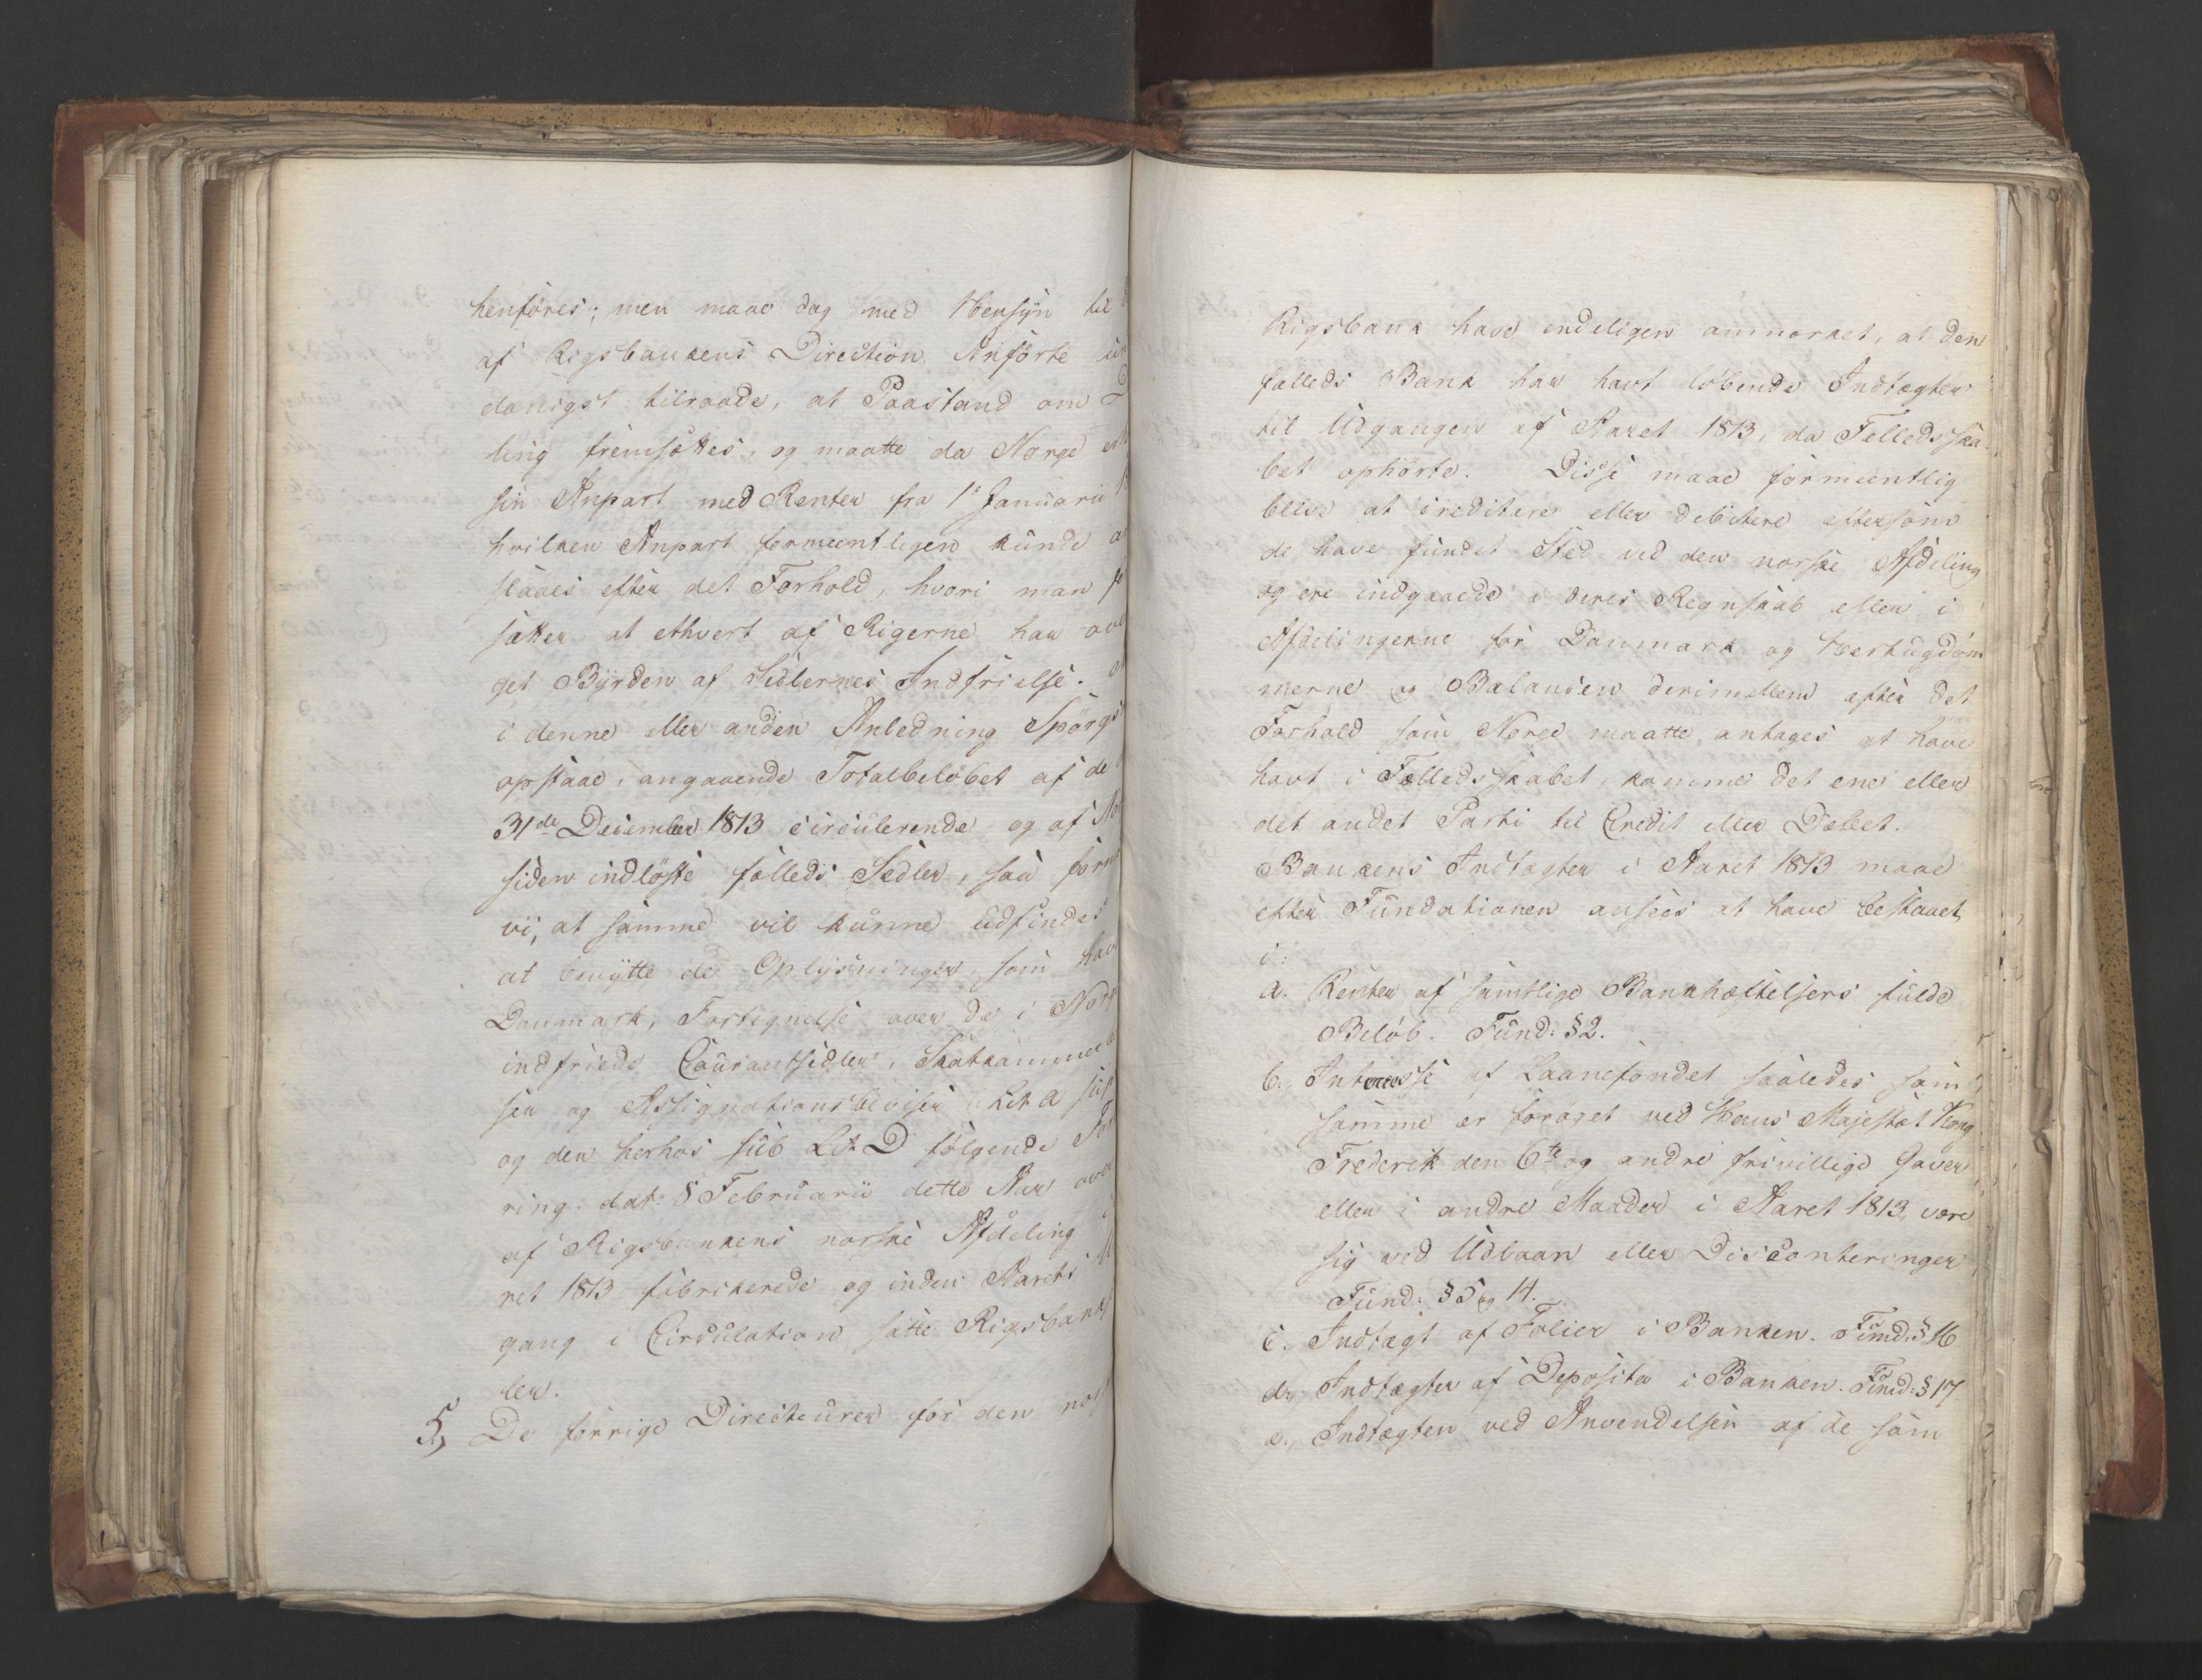 henföres; men maae dog med Hensÿn til
af Rigsbankens Direction Anförte
danigst tilraade, at Paastand om
ling fremsættes, og maatte da Norge
sin Anpart med Renter fra 1e Januarii
hvilken Anpart formeentligen kunde
slaaes efter det Forhold, hvori man
sætter at ethvert af Rigerne har
get Bÿrden af Sedlernes Indfrielse.
i denne eller anden Anledning Spörgs
opstaae, angaaende Totalbelöbet af de
31de December 1813 circulerende og af
siden indlöste fælleds Sedler, saa
vi, at samme vil kunne udfindes
at benÿtte de Oplÿsninger, som have
Danmark, Fortegnelse over de i Norge
indfriede Courantsedler, Skatkammer
ser og Assignationsbeviser Lit a
og den herhos sub Lit D fölgende
ring dat: 8 Februarii dette Aar over
af Rigsbankens norske Afdeling i
ret 1813 fabrikerede og inden Aarets
gang i Circulation satte Rigsbank
ler.
5, De forrige Directeurer for den
Rigsbank have endeligen anmærket, at den
fælleds Bank har havt löbende Indtægter
til Udgangen af Aaret 1813, da Felledsska-
bet ophörte. Disse maae formeentlig
blive at creditere eller debitere eftersom
de have fundet Sted ved den norske Afdeling
og ere indgaaede i deres Regnskab eller i
Afdelingerne for Danmark og Hertugdöm
merne og Balancen derimellem efter det
Forhold som Norge maatte antages at have
havt i Fælledsskabet, komme det ene eller
det andet Parti til Credit eller Debet.
Bankens Indtægter i Aaret 1813 maae
efter Fundationen ansees at have bestaaet
i:
a. Renter af samtlige Bankhæftelsers fulde
Belöb. Fund: § 2.
b., Interesse af Laanefondet saaledes som
samme er foröget ved Hans Majestæt Kong
Frederik den 6te og andre frivillige Gaver
eller i andre Maader i Aaret 1813, være
sig ved Udlaan eller Disconteringer
Fund: § 5 og 14.
c., Indtægt af Folier i Banken. Fund: § 16
d., Indtægter af Deposita i Banken. Fund: § 17
e., Indtægten ved Anvendelsen af de som